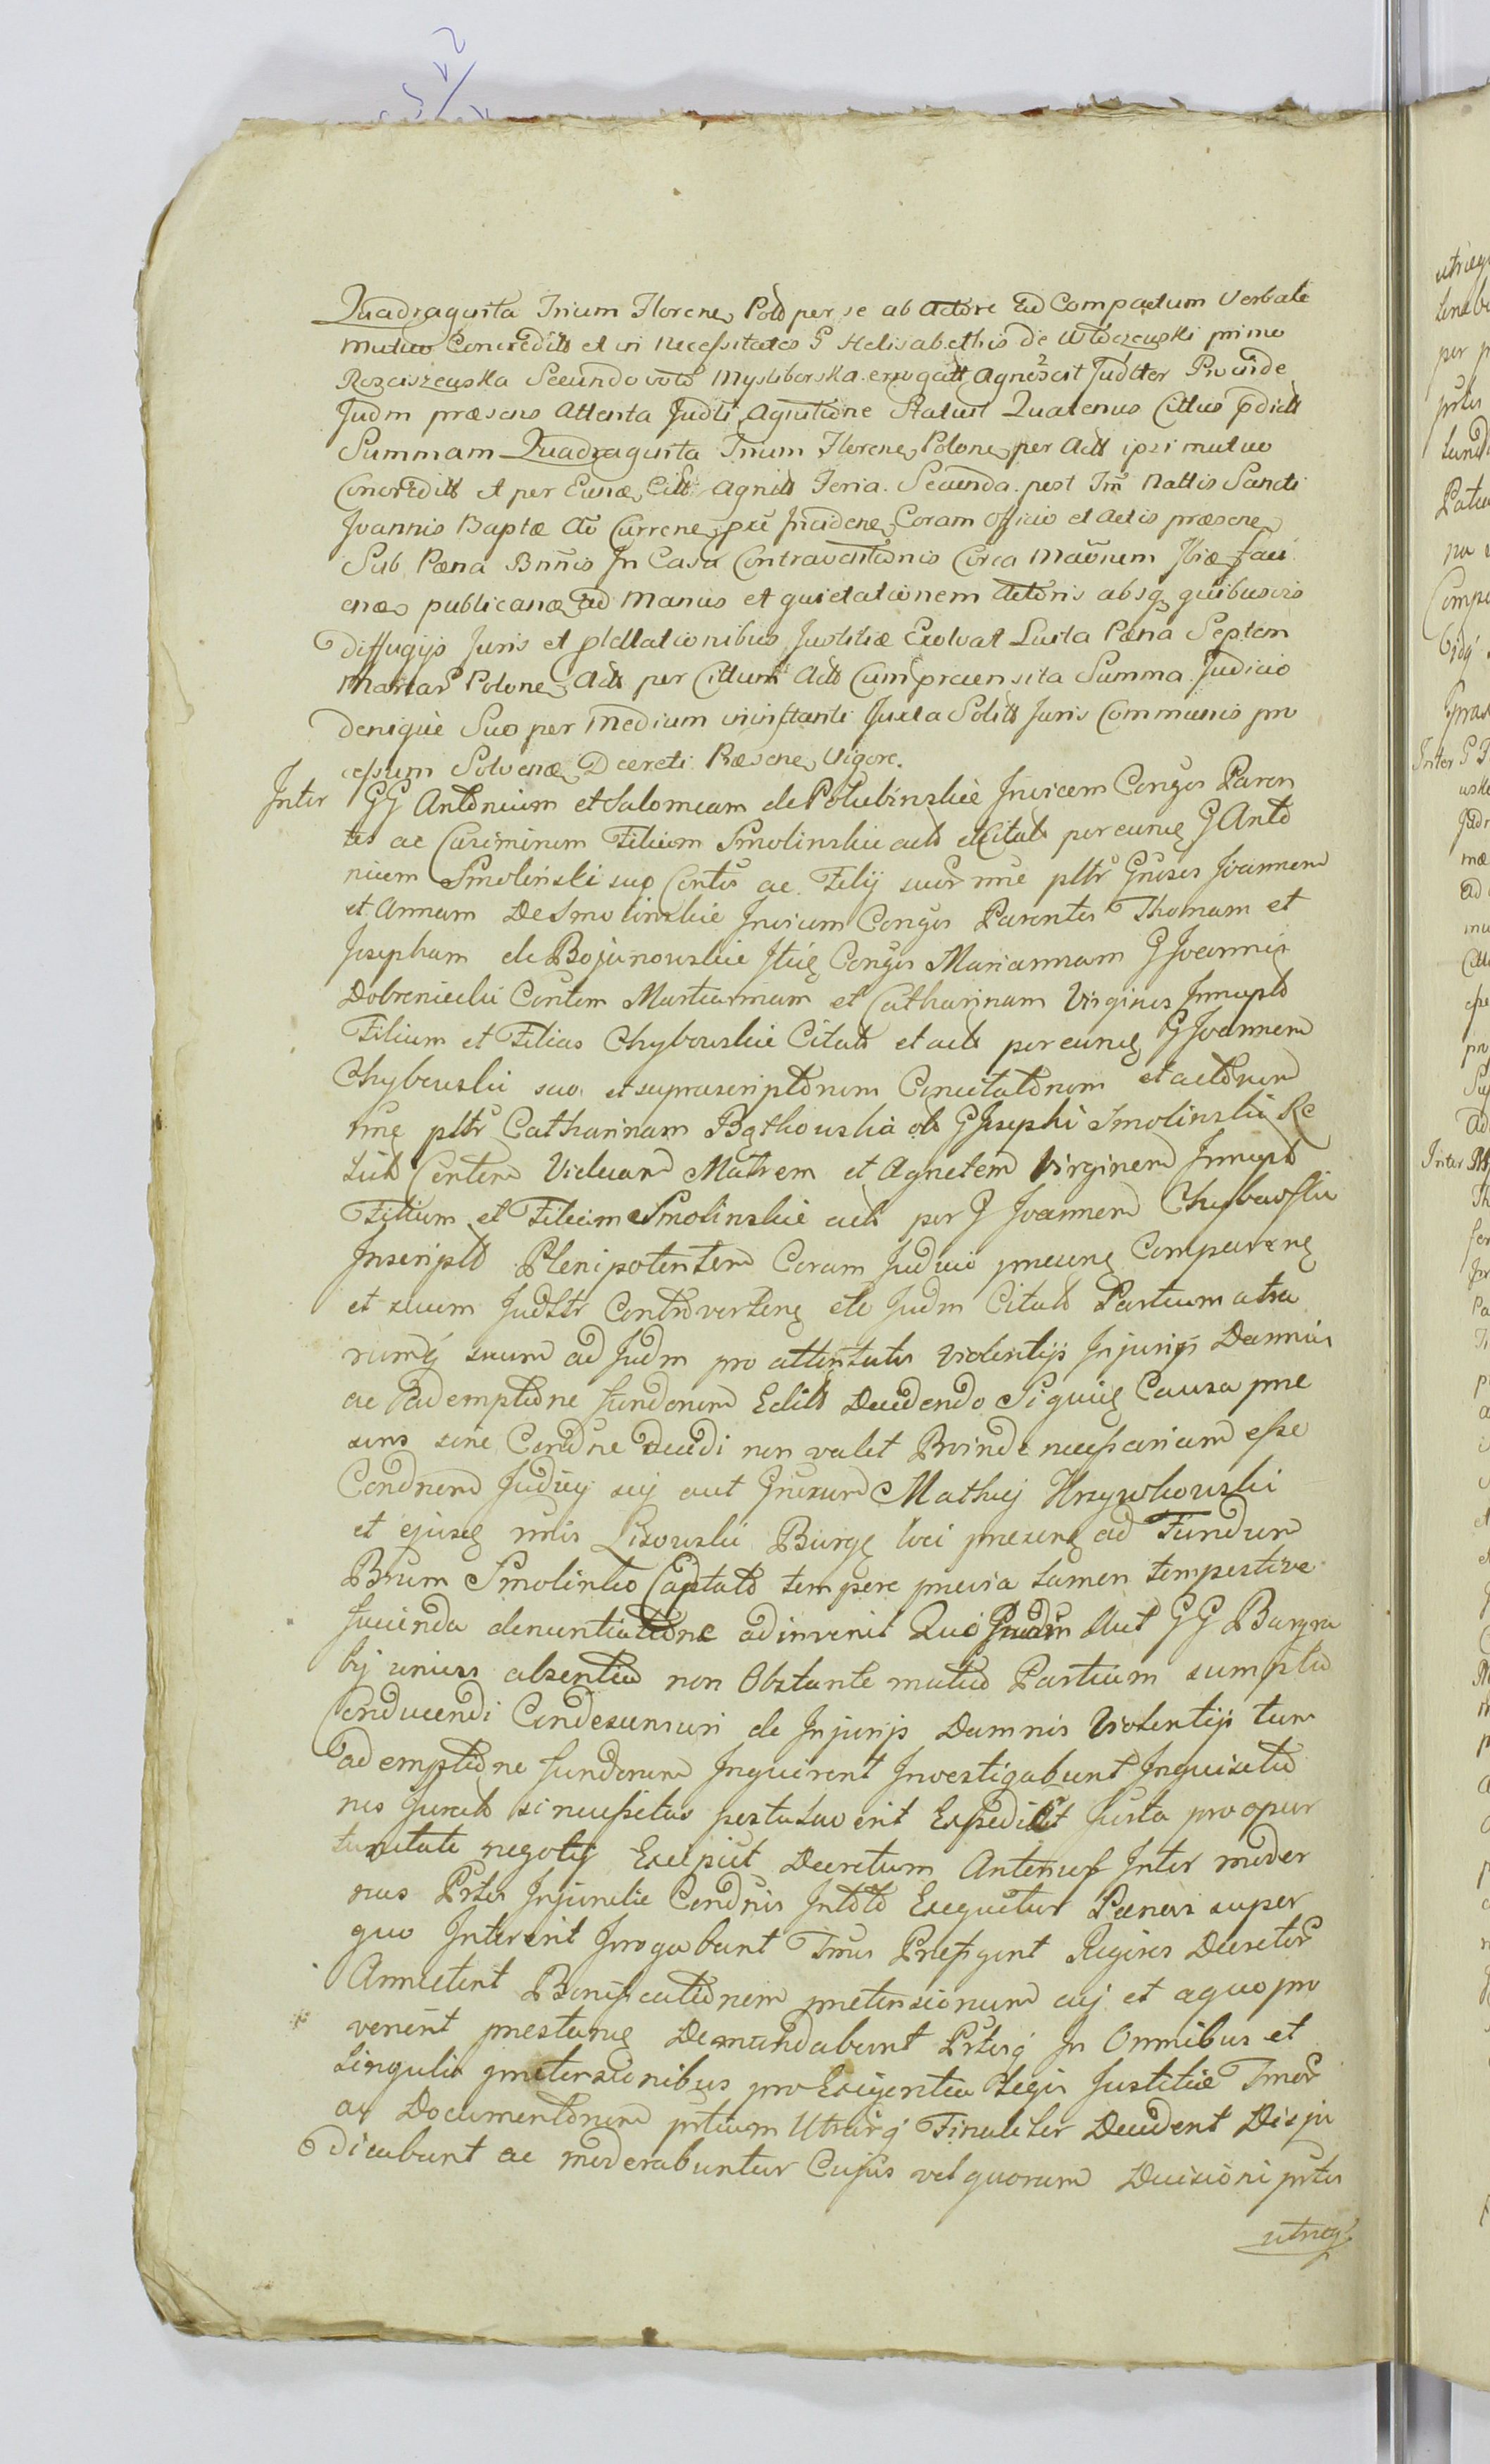 Quadraginta Trium Florenɛ Polo per se ab Actore ad Compactum Verbale
Mutuo Concredits et in Necessitates G Helisabethis de Włoczewski primo
Rosciszewska Secundo voto Mysliborska erogatt Agnoscit Judtter Proinde
Judm præsens Attenta Judti Agnitione Statuit Quatenus Cittus pdictt
Summam Quadraginta Trium Florenɛ Polonɛ per Actt ipsi mutuo
Concredits et per Eunɛ Citt Agnits Feria Secunda post Fm Nattis Sancti
Joannis Baptæ Ao Currenɛ Incidenɛ Coram Officio et Actis præsenɛ
Sub Pæna Bnnis In Casu Contraventionis Circa
publicanɛ ad Manus et quietationem Actoris absq quibusvis
Diffugijs Juris et plttationibus Justitiæ Exolvat Luita Pæna Septem
Marcar Polonɛ Acts per Cittum Acts Cum præinsita Summa Judicio
denique Suo per Medium ininstanti Juxta Solitt Juris Communis pro
cessum Solvenɛ Decreti Præsenɛ Vigore.
Inter GG Antonium et Salomeam de Połubinskie Invicem Conges Paren
tes ac Casimirum Filium Smolinskie acts et Citats per eunɛ G Anto
nium Smolinski suo Contis ac Filij suor nne pltr Gnoses Joannem
et Annam De Smolinskie Invicem Conges Parentes Thomam et
Josepham de Bojanowskie Itiɛ Conges Mariannam G Joannis
Dobreniecki Contem Martiannam et Catharinam Virgines Innupts
Filium et Filias Chybowskie Citats et acts per eunɛ G Joannem
Chybowski suo et suprascriptorum Concitatorum et actorum
nnɛ pltr Catharinam Bętkowska ol G Josephi Smolinski Re
lict Contem Viduam Matrem et Agnetem Virginem Innupt
Filium et Filiam Smolinskie acts per G Joannem Chybowskie
Inscripto Plenipotentem Coram Judicio pnecunɛ Comparenɛ
et suum Judttr Controvertenɛ etc Judm Citats Partium atra
rumq suum ad Judm pro attentatis Violentijs Injurijs Damnis
ac ademptione fundorum Edits Decidendo Siquiɛ Causa pne
sens sine Condne decidi non valet Proinde necessariam esse
Condnem Judicij sui aut Gnosum Mathiej Krzywkowski
et ejusɛ nnis Lisowski Burgɛ loci pnesenɛ ad Fundum
Bnum Smolinko Captato tempore previa tamen tempestive
facienda denuntiatione adinvenit Quo Judm Aut GG Burgra
bij unius absentia non Obstante mutuo Partium sumptu
Conducendi Condescensuri de Injurijs Damnis Violentijs tum
ademptione fundorum Inquirent Investigabunt Inquisitio
nes jurats si necessitas postulaverit Expedient Juxta pro opur
tunitate negotij Excipiet Decretum Anterius Inter moder
nas Prtes Injunctie Condnis Intoto Exequetur Pænas super
quo Intererit Irrogabunt Tmis Prefigent Rigores Decretor
Annectent Bonificationem pretensionum cuj et a quo pro
venerit prestanɛ Demandabunt Prtesq In Omnibus et
Singulis pretensionibus pro Exigentia Legis Justitiæ Tmor
ac Documentorum prtium Utrarq Finaliter Decident Disju
dicabunt ac moderabuntur Cujus vel quorum Decisioni prtes
utraq